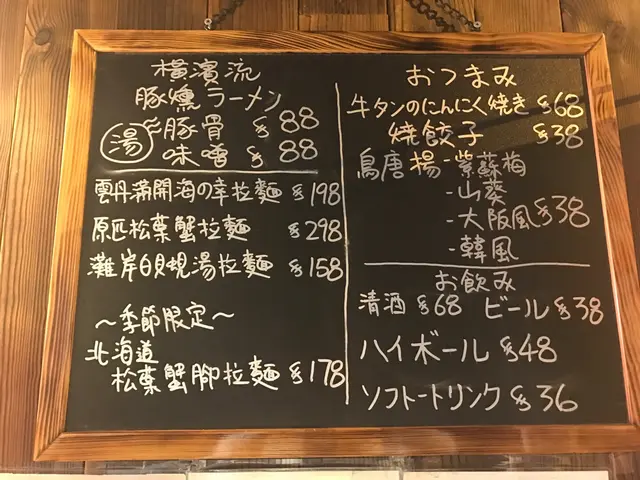 横濱流
豚燻ラーメン
湯
豚骨 $88
味噌 $88
雲丹満開海の幸拉麵 $198
原匹松葉蟹拉麵 $298
灘岸白貝蜆湯拉麵 $158
～季節限定～
北海道
松葉蟹腳拉麵 $178
おつまみ
牛タンのにんにく焼き $68
焼餃子 $38
鳥唐揚-紫蘇梅
-山葵
-大阪風 $38
-韓風
お飲み
清酒 $68 ビール $38
ハイボール $48
ソフトートリンク $36